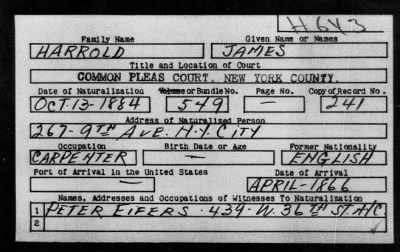 H 643
Family Name Given Name or Names
HARROLD JAMES
Title and Location of Court
COMMON PLEAS COURT, NEW YORK COUNTY.
Date of Naturalization Volume or Bundle No. Page No. Copy of Record No.
OCT-13-1884 549 — 241
Address of Naturalized Person
267-9TH AVE. N.Y. CITY
Occupation Birth Date or Age Former Nationality
CARPENTER — ENGLISH
Port of Arrival in the United States Date of Arrival
— APRIL-1866
Names, Addresses and Occupations of Witnesses To Naturalization
1 PETER EIFERS - 439-W. 36TH ST. N.Y.C.
2